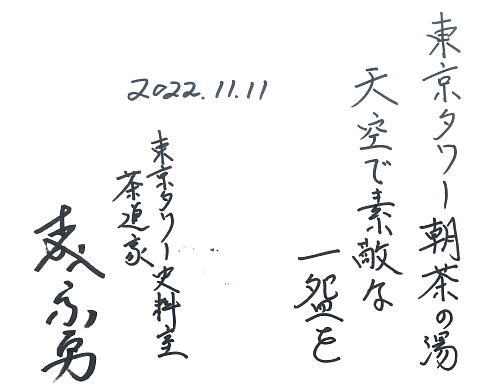 東京タワー朝茶の湯
天空で素敵な
一盌を
2022.11.11
東京タワー史料室
茶道家